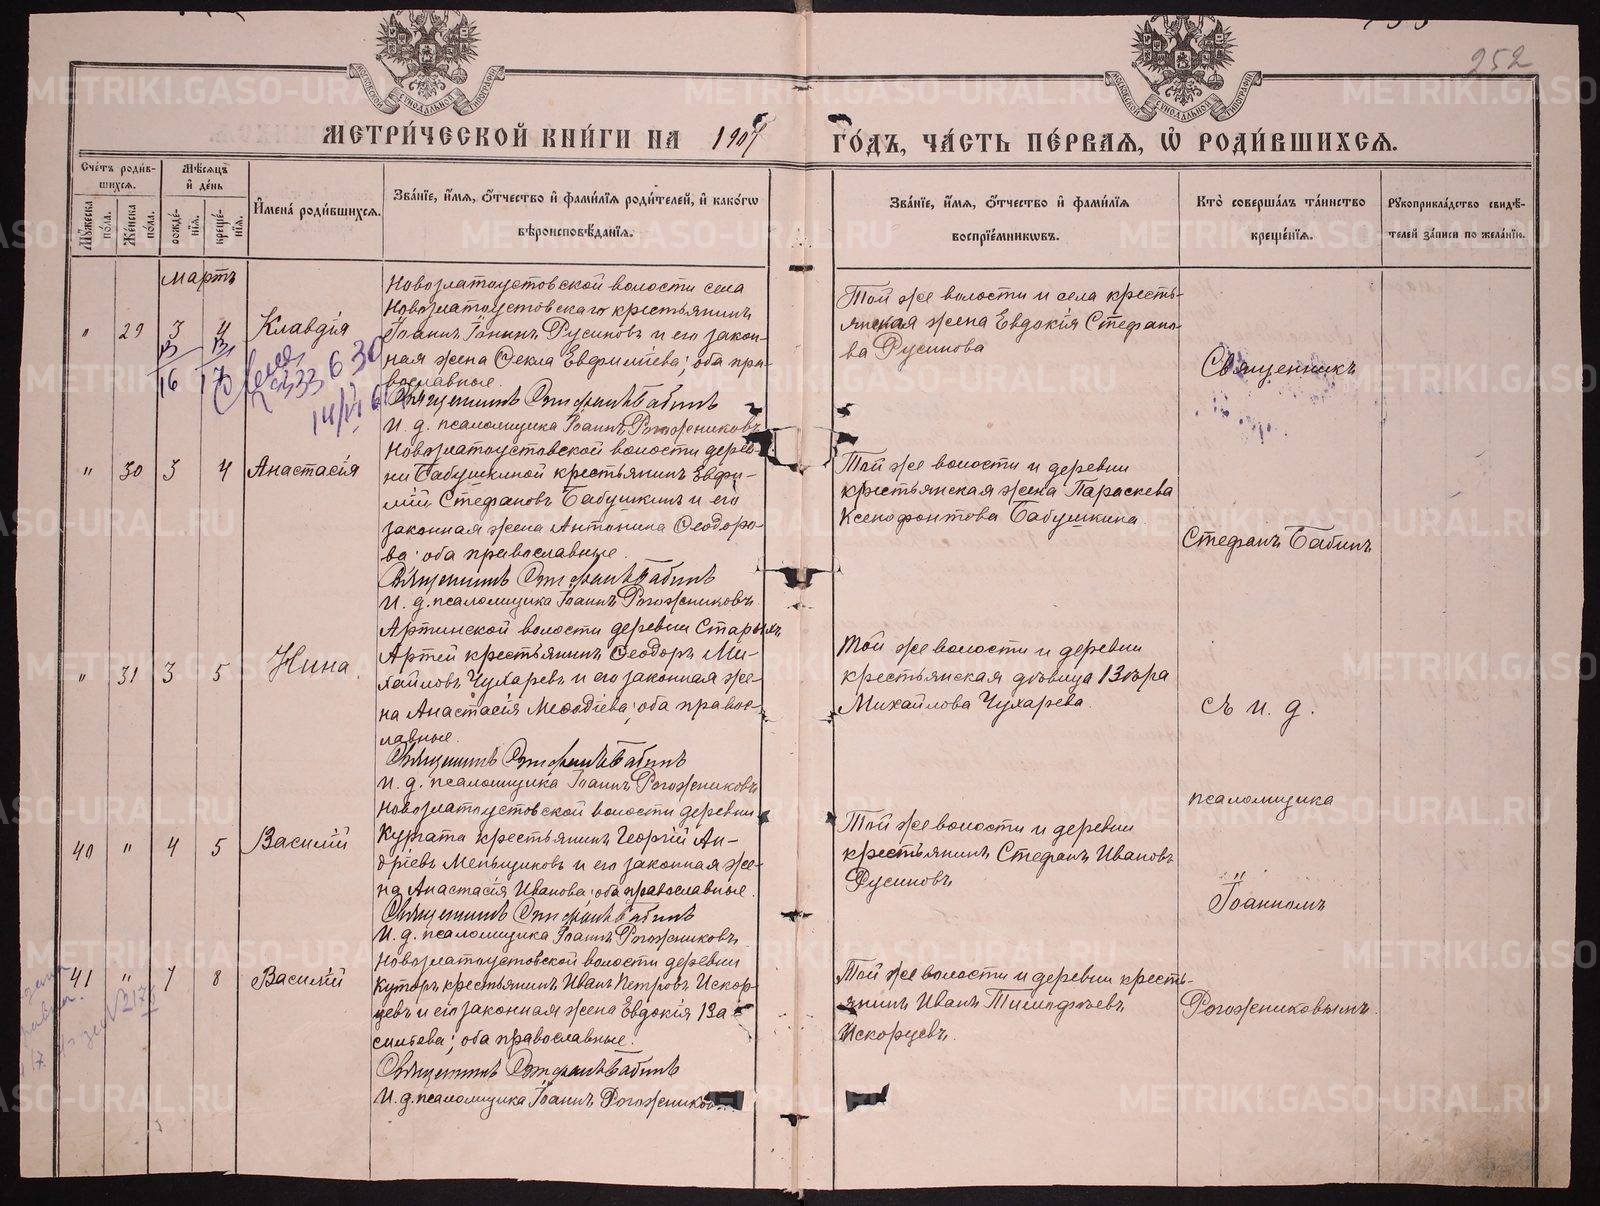 252
МЕТРИ́ЧЕСКОЙ КНИ́ГИ НА 1907 ГО́ДЪ, ЧА́СТЬ ПЕ́РВАЯ, Ѽ РОДИ́ВШИХСЯ.
Сче́тъ роди́в-
шихся.
Мѣ́сяцъ
и҆ де́нь
Мꙋ́жеска
по́ла.
Же́нска
по́ла.
рожде́-
нїѧ.
креще́-
нїѧ.
И҆мена̀ роди́вшихся.
Зва́нїе, и҆́мѧ, ѻ҆́тчество и҆ фами́лїѧ роди́телей, и҆ како́гѡ
вѣроисповѣ́данїѧ.
Зва́нїе, и҆́мѧ, ѻ҆́тчество и҆ фами́лїѧ
воспрїе́мникѡвъ.
Кто̀ соверша́лъ та́инство
креще́нїѧ.
Рꙋкоприкла́дство свидѣ́-
телей за́писи по жела́нїю.
Мартъ
" 29 3 4 Клавдія
16 17
14/VI 6
Новозлатоустовской волости села
Новозлатоустовскаго крестьянинъ
Іоаннъ Іоаннъ Русиновъ и его закон-
ная жена Ѳекла Евфиміева; оба пра-
вославные.
Священникъ Стефанъ Бабинъ
И. д. псаломщика Іоаннъ Рогожниковъ
Той же волости и села кресть-
янская жена Евдокія Стефано-
ва Русинова
Священникъ
" 30 3 4 Анастасія
Новозлатоустовской волости дерев-
ни Бабушкиной крестьянинъ Евфи-
мій Стефановъ Бабушкинъ и его
законная жена Антонина Ѳеодоро-
ва; оба православные.
Священникъ Стефанъ Бабинъ
И. д. псаломщика Іоаннъ Рогожниковъ
Той же волости и деревни
крестьянская жена Параскева
Ксенофонтова Бабушкина.
Стефанъ Бабинъ
" 31 3 5 Нина.
Артинской волости деревни Старыхъ
Артей крестьянинъ Ѳеодоръ Ми-
хайловъ Чухаревъ и его законная же-
на Анастасія Меѳодіева; оба правос-
лавные.
Священникъ Стефанъ Бабинъ
И. д. псаломщика Іоаннъ Рогожниковъ
Той же волости и деревни
крестьянская дѣвица Вѣра
Михайлова Чухарева.
съ и. д.
псаломщика
40 " 4 5 Василій
Новозлатоустовской волости деревни
Кургата крестьянинъ Георгій Ан-
дріевъ Меньщиковъ и его законная же-
на Анастасія Иванова; оба православные.
Священникъ Стефанъ Бабинъ
И. д. псаломщика Іоаннъ Рогожниковъ
Той же волости и деревни
крестьянинъ Стефанъ Ивановъ
Русиновъ
Іоанномъ
41 " 7 8 Василій
Новозлатоустовской волости деревни
Куторъ крестьянинъ Иванъ Петровъ Искор-
цевъ и его законная жена Евдокія Ва-
сильева; оба православные.
Священникъ Стефанъ Бабинъ
И. д. псаломщика Іоаннъ Рогожниковъ
Той же волости и деревни кресть-
янинъ Иванъ Тимофѣевъ
Искорцевъ.
Рогожниковымъ.